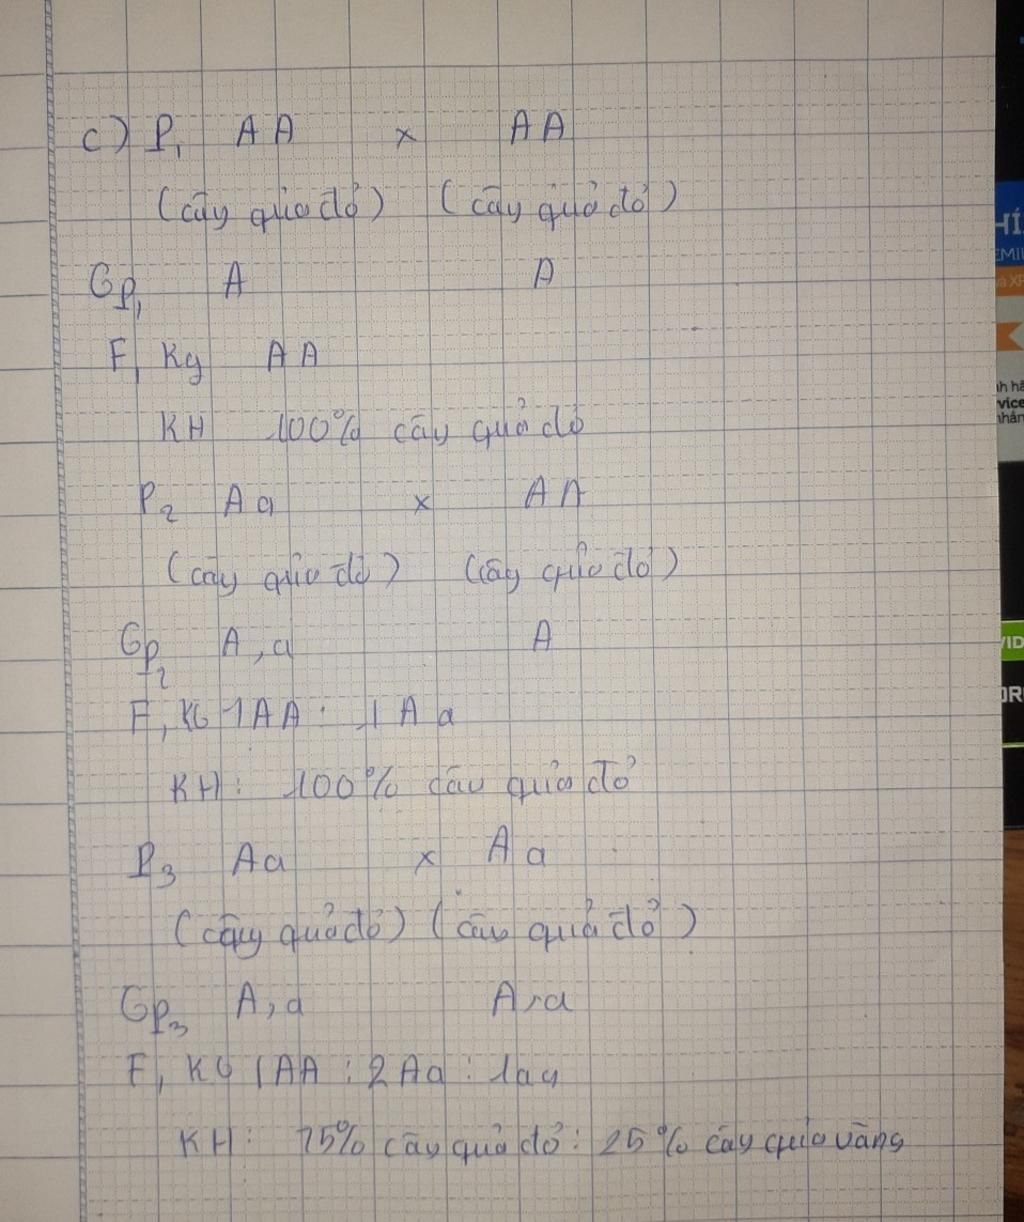 c) P₁ AA x AA
(cây quả đỏ) (cây quả đỏ)
Gp₁ A A
F₁ KG AA
KH 100% cây quả đỏ
P₂ Aa x AA
(cây quả đỏ) (cây quả đỏ)
Gp₂ A, a A
F₁ KG 1AA : 1Aa
KH: 100% cây quả đỏ
P₃ Aa x Aa
(cây quả đỏ) (cây quả đỏ)
Gp₃ A, a A, a
F₁ KG 1AA : 2Aa : 1aa
KH: 75% cây quả đỏ : 25% cây quả vàng